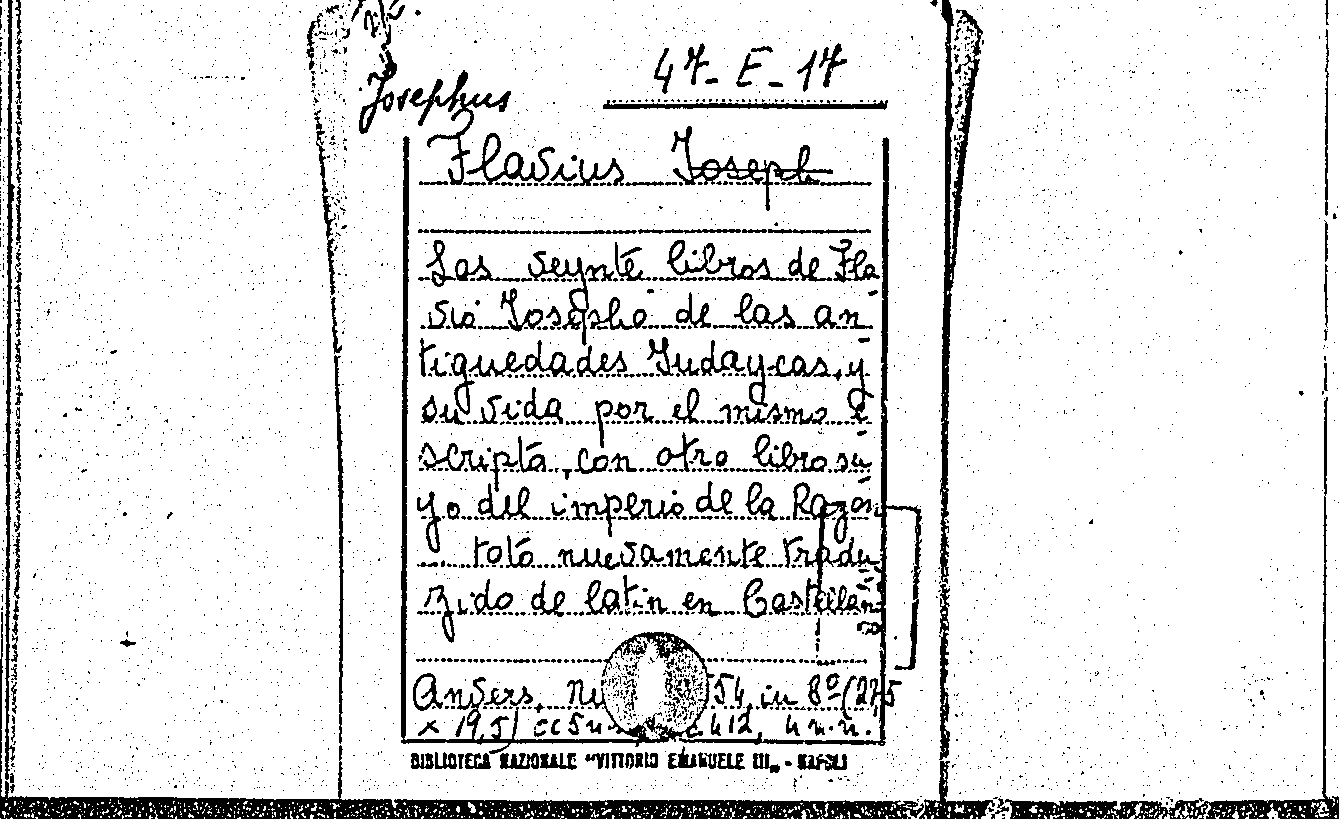 47-E-17
Josephus
Flavius Joseph
Los veynte libros de Fla
vio Josepho de las an
tiguedades Judaycas, y
su vida por el mismo e
scripta, con otro libro su
yo del imperio de la Razon
... toto nuevamente tradu
zido de latin en Castellano
Anvers, 54, in 8º (27,5
x 19,5) cc 412, 4 n.n.
BIBLIOTECA NAZIONALE "VITTORIO EMANUELE III" - NAPOLI